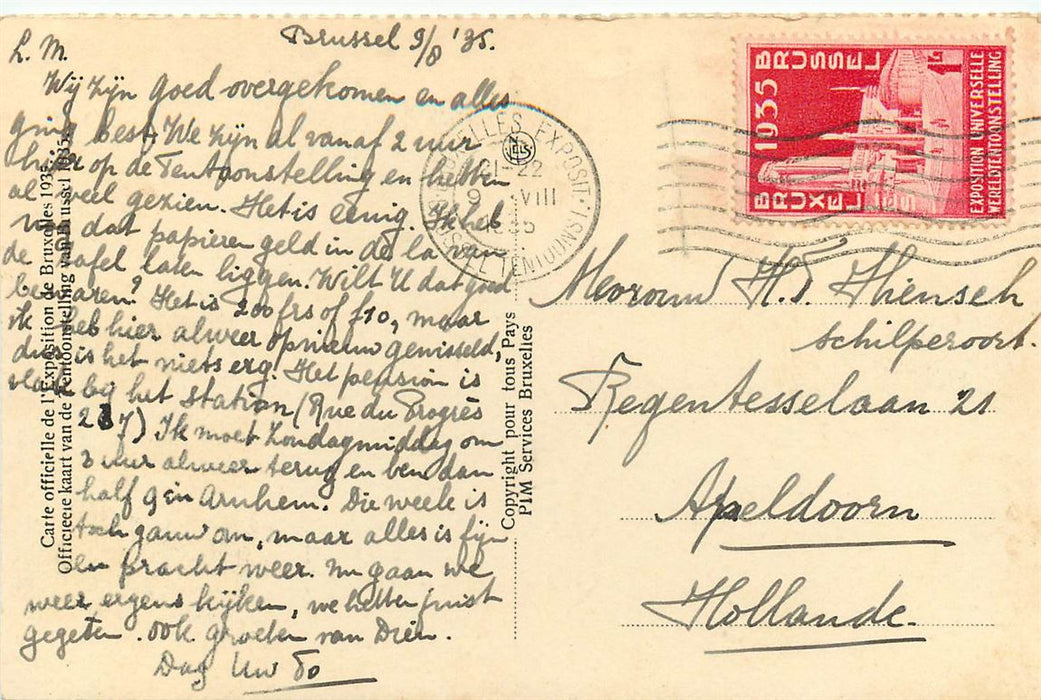 Brussel 9/8 '35.
L. M.
Wij zijn goed overgekomen en alles
ging best. We zijn al vanaf 2 uur
hier op de Tentoonstelling en hebben
al veel gezien. Het is eenig. Ik heb
nu dat papieren geld in de la van
de tafel laten liggen. Wilt U dat goed
bewaren? Het is 200 frs of f10, maar
ik heb hier alweer opnieuw gewisseld,
dus is het niets erg! Het pension is
vlak bij het station (Rue du Progrès
237) Ik moet Zondagmiddag om
3 uur alweer terug en ben dan
half 9 in Arnhem. Die week is
toch gauw om, maar alles is fijn
en pracht weer. Nu gaan we
weer ergens kijken, we hebben juist
gegeten. Ook groeten van Dien.
Dag Uw
Carte officielle de l'Exposition de Bruxelles 1935.
Officieele kaart van de Tentoonstelling van Brussel 1935.
Copyright pour tous Pays
PIM Services Bruxelles
EXPOSIT.
TENTOONST.
21-22
9 VIII
35
BRUSSEL
1935
BRUXELLES
EXPOSITION UNIVERSELLE
WERELDTENTOONSTELLING
Mevrouw H. J. Hiensch
Schilperoort.
Regentesselaan 21
Apeldoorn
Hollande.